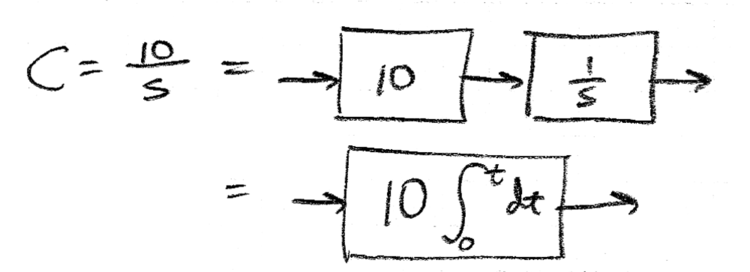 C = 10/s = → 10 → 1/s →
= → 10 ∫₀ᵗ dt →